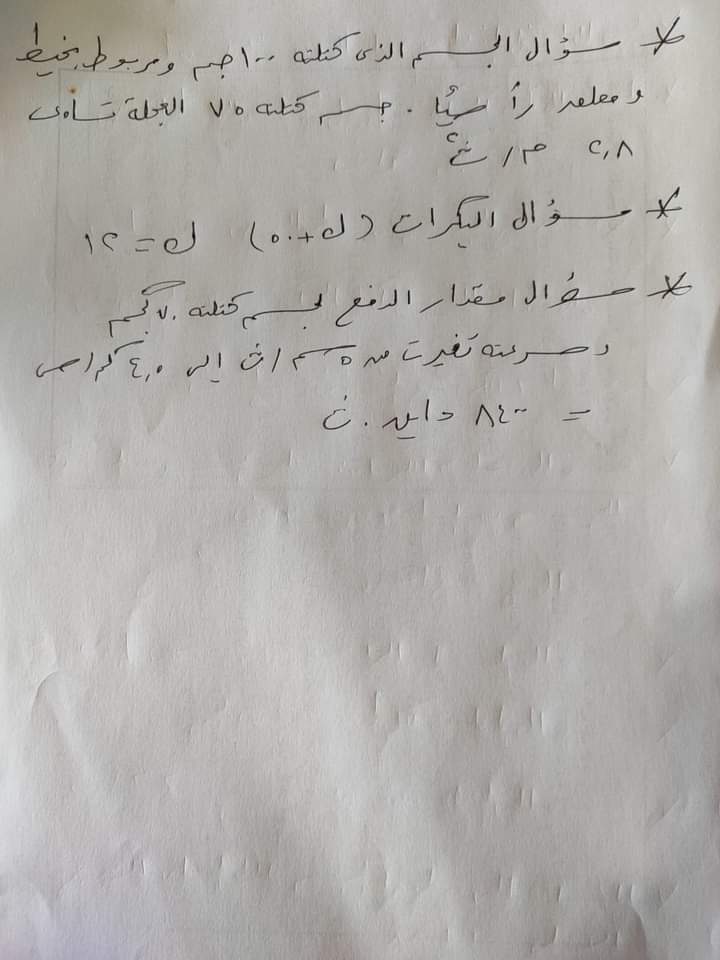 * سؤال الجسم الذى كتلته ١٠٠ جم ومربوط بخيط
ومعلق رأسيًا . جسم كتلته ٧٥ العجلة تساوى
٢,٨ م/ث٢
* سؤال البكرات (ك+٥٠) ك=١٢
* سؤال مقدار الدفع لجسم كتلته ٧٠ كجم
وسرعته تغيرت من ٥ سم/ث إلى
= ٨٤٠٠ داين.ث